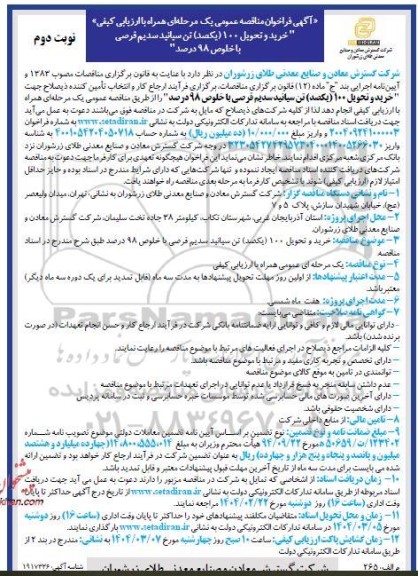 «آگهی فراخوان مناقصه عمومی یک مرحله‌ای همراه با ارزیابی کیفی»
" خرید و تحویل ۱۰۰ (یکصد) تن سیانید سدیم قرصی
با خلوص ۹۸ درصد"
نوبت دوم
شرکت گسترش معادن و صنایع
معدنی طلای زرشوران
شرکت گسترش معادن و صنایع معدنی طلای زرشوران در نظر دارد با عنایت به قانون برگزاری مناقصات مصوب ۱۳۸۳ و
آیین‌نامه اجرایی بند "ج" ماده (۱۲) قانون برگزاری مناقصات، برگزاری فرآیند ارجاع کار و انتخاب تأمین کننده ذیصلاح جهت
"خرید و تحویل ۱۰۰ (یکصد) تن سیانید سدیم قرصی با خلوص ۹۸ درصد" را از طریق مناقصه عمومی یک مرحله‌ای همراه
با ارزیابی کیفی انجام دهد لذا از کلیه شرکت‌های ذیصلاح که مایل به شرکت در مناقصه فوق می‌باشند دعوت به عمل می‌آید
جهت دریافت اسناد مناقصه با مراجعه به سامانه تدارکات الکترونیکی دولت به نشانی www.setadiran.ir به شماره فراخوان
و واریز مبلغ ۱۰/۰۰۰/۰۰۰ (ده میلیون ریال) به شماره حساب
در وجه شرکت گسترش معادن و صنایع معدنی طلای زرشوران نزد
بانک مرکزی شعبه مرکزی اقدام نمایند. خاطر نشان می‌نماید این فراخوان هیچگونه تعهدی برای کارفرما جهت دعوت به مناقصه
شرکت‌های دریافت کننده اسناد مناقصه ایجاد ننموده و تنها شرکت‌هایی که دارای شرایط مندرج در اسناد بوده و حایز حداقل
امتیاز لازم (ارزیابی کیفی) شوند با تشخیص کارفرما به مرحله بعدی مناقصه راه خواهند یافت.
۱- نام و نشانی دستگاه مناقصه گزار: شرکت گسترش معادن و صنایع معدنی طلای زرشوران به نشانی، تهران، میدان ولیعصر
(عج)، خیابان شهیدان سازش، پلاک ۵ و ۷
۲- محل اجرای پروژه: استان آذربایجان غربی، شهرستان تکاب، کیلومتر ۳۸ جاده تخت سلیمان، شرکت گسترش معادن و
صنایع معدنی طلای زرشوران.
۳- موضوع مناقصه: خرید و تحویل ۱۰۰ (یکصد) تن سیانید سدیم قرصی با خلوص ۹۸ درصد طبق شرح مندرج در اسناد
مناقصه
۴- نوع مناقصه: یک مرحله ای عمومی همراه با ارزیابی کیفی
۵- مدت اعتبار پیشنهادها: از اولین روز مهلت تحویل پیشنهادها به مدت سه ماه (قابل تمدید برای یک دوره سه ماه دیگر)
معتبر باشد.
۶- مدت اجرای پروژه: هفت ماه شمسی.
۷- گواهی نامه صلاحیت: متقاضی می‌بایست:
- دارای توانایی مالی لازم و کافی و توانایی ارایه ضمانتنامه بانکی شرکت در فرآیند ارجاع کار و حسن انجام تعهدات (در صورت
برنده شدن) باشد.
- کلیه الزامات مراجع ذیصلاح در اجرای فعالیت های مرتبط با موضوع مناقصه را رعایت نمایند.
- دارای تخصص و تجربه کاری مفید و مرتبط با موضوع مناقصه باشد.
- توانمندی در تامین به موقع کالای موضوع مناقصه
- عدم داشتن سابقه منجر به فسخ قرارداد یا عدم توانایی در اجرای تعهدات مرتبط با موضوع مناقصه
- دارای آخرین صورت های مالی حسابرسی شده توسط موسسات خبره حسابرسی و ثبت در سامانه پردیس
- دارای شخصیت حقوقی باشد.
۸- تامین مالی: از منابع داخلی شرکت
۹- مبلغ ضمانت نامه و نوع تضمین: نوع تضمین بر اساس آیین نامه تضمین معاملات دولتی موضوع تصویب نامه شماره
۱۲۳۴۰۲/ت۵۰۶۵۹ه مورخ ۹۴/۰۹/۲۲ هیأت محترم وزیران به مبلغ
ریال به عنوان تضمین شرکت در فرآیند ارجاع کار خواهد بود و تضمین ارائه
شده می بایست برای مدت سه ماه از تاریخ آخرین مهلت قبول پیشنهادات معتبر و قابل تمدید باشد.
۱۰- زمان دریافت اسناد: از اشخاصی که تمایل به شرکت در مناقصه مزبور را دارند دعوت به عمل می آید جهت دریافت
اسناد مربوطه از طریق سامانه تدارکات الکترونیکی دولت به نشانی www.setadiran.ir از تاریخ درج آگهی حداکثر تا پایان
وقت اداری (ساعت ۱۶) روز دوشنبه مورخ مراجعه نمایند.
۱۱- زمان و محل تحویل اسناد: متقاضیان مکلفند پیشنهادهای خود را حداکثر تا پایان وقت اداری (ساعت ۱۶) روز دوشنبه
مورخ در سامانه تدارکات الکترونیکی دولت به نشانی www.setadiran.ir بارگذاری نمایند.
۱۲- زمان گشایش پاکت ارزیابی کیفی: ساعت ۱۰ صبح روز چهارشنبه مورخ به نشانی: مندرج در بند ۲ از
طریق سامانه تدارکات الکترونیکی دولت
شرکت گسترش معادن و صنایع معدنی طلای زرشوران
م الف: ۲۶۵
شناسه آگهی: ۱۹۱۷۳۳۶
ParsNamadData